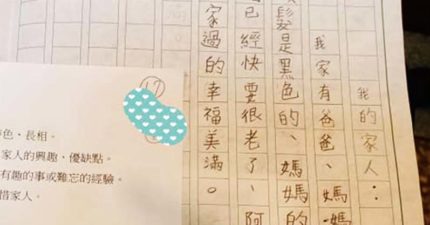 我的家人：
我家有爸爸、媽媽
髮是黑色的、媽媽的
已經快要很老了、阿
家過的幸福美滿。
17
色、長相。
家人的興趣、優缺點。
有趣的事或難忘的經驗
惜家人。